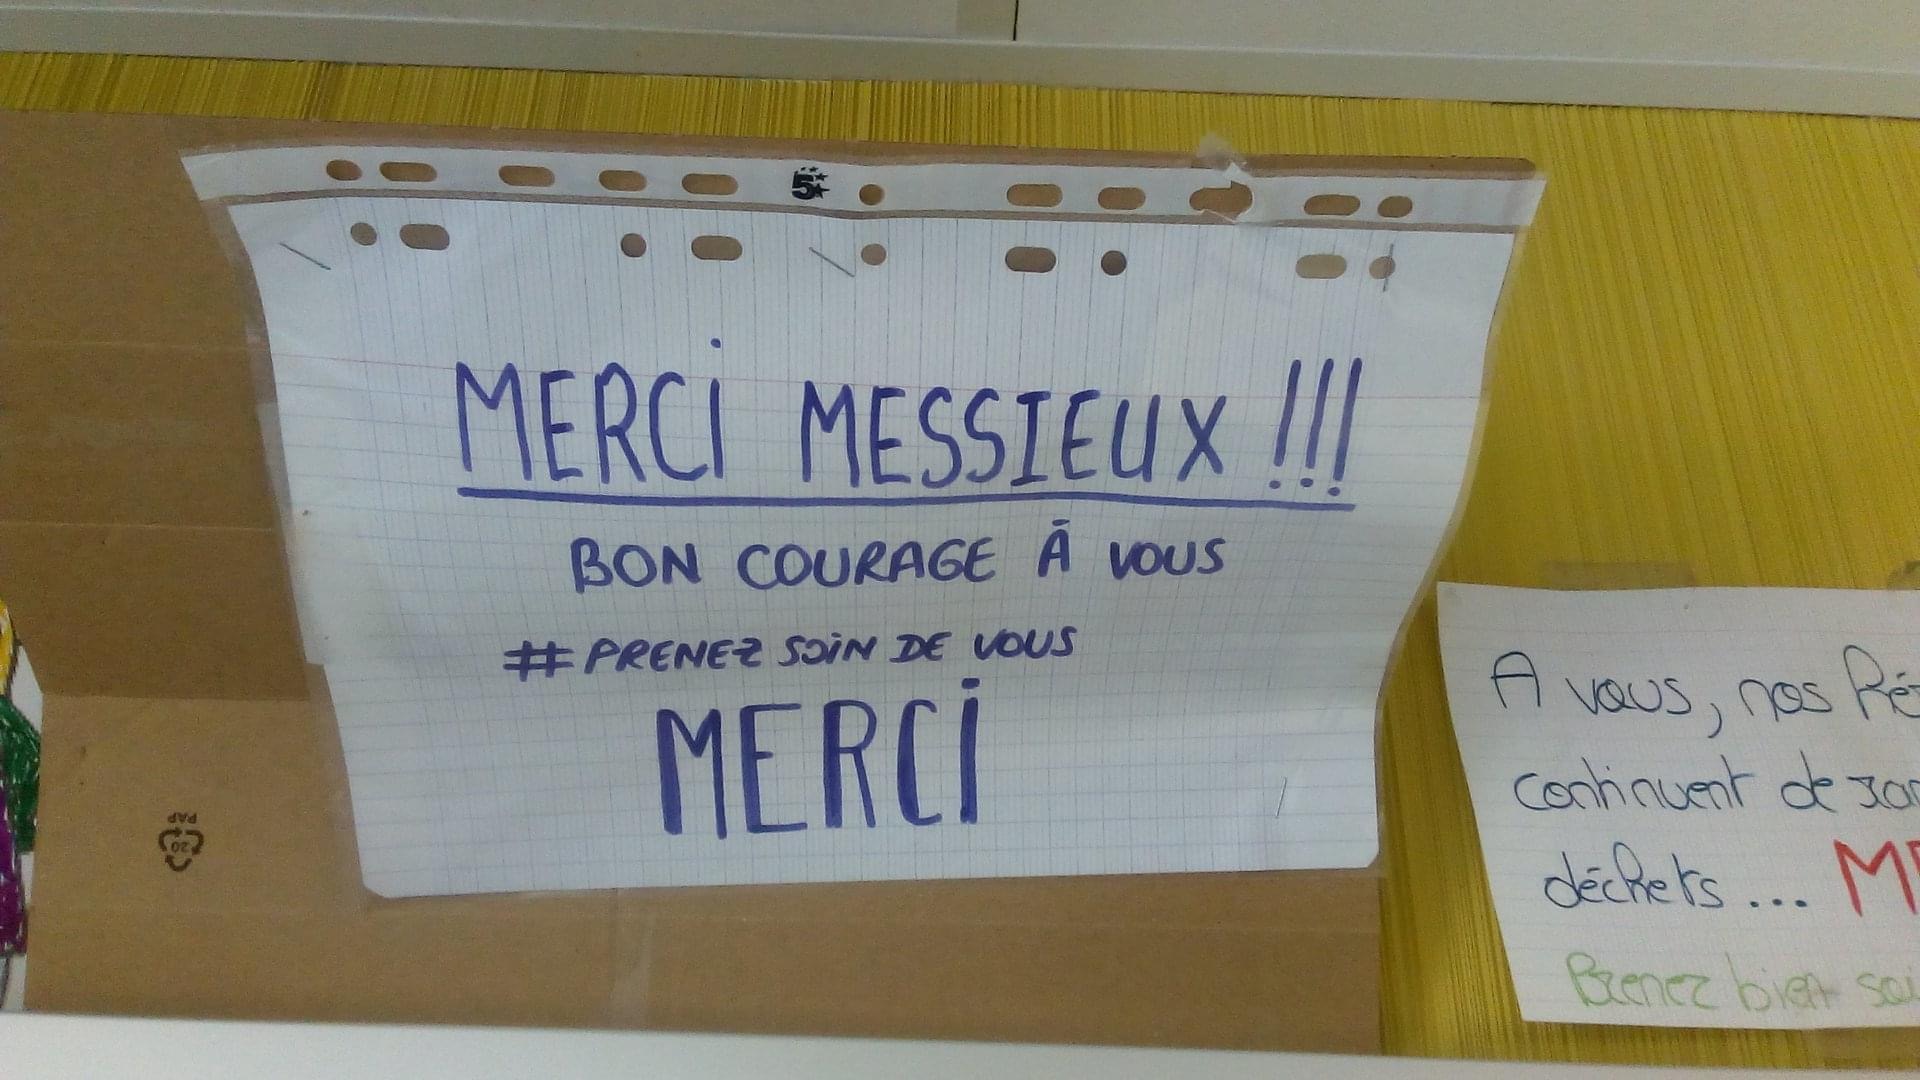 5
MERCI MESSIEUX !!!
BON COURAGE À VOUS
# PRENEZ SOIN DE VOUS
MERCI
20
PAP
A vous, nos
continuent de
déchets...
Prenez bien